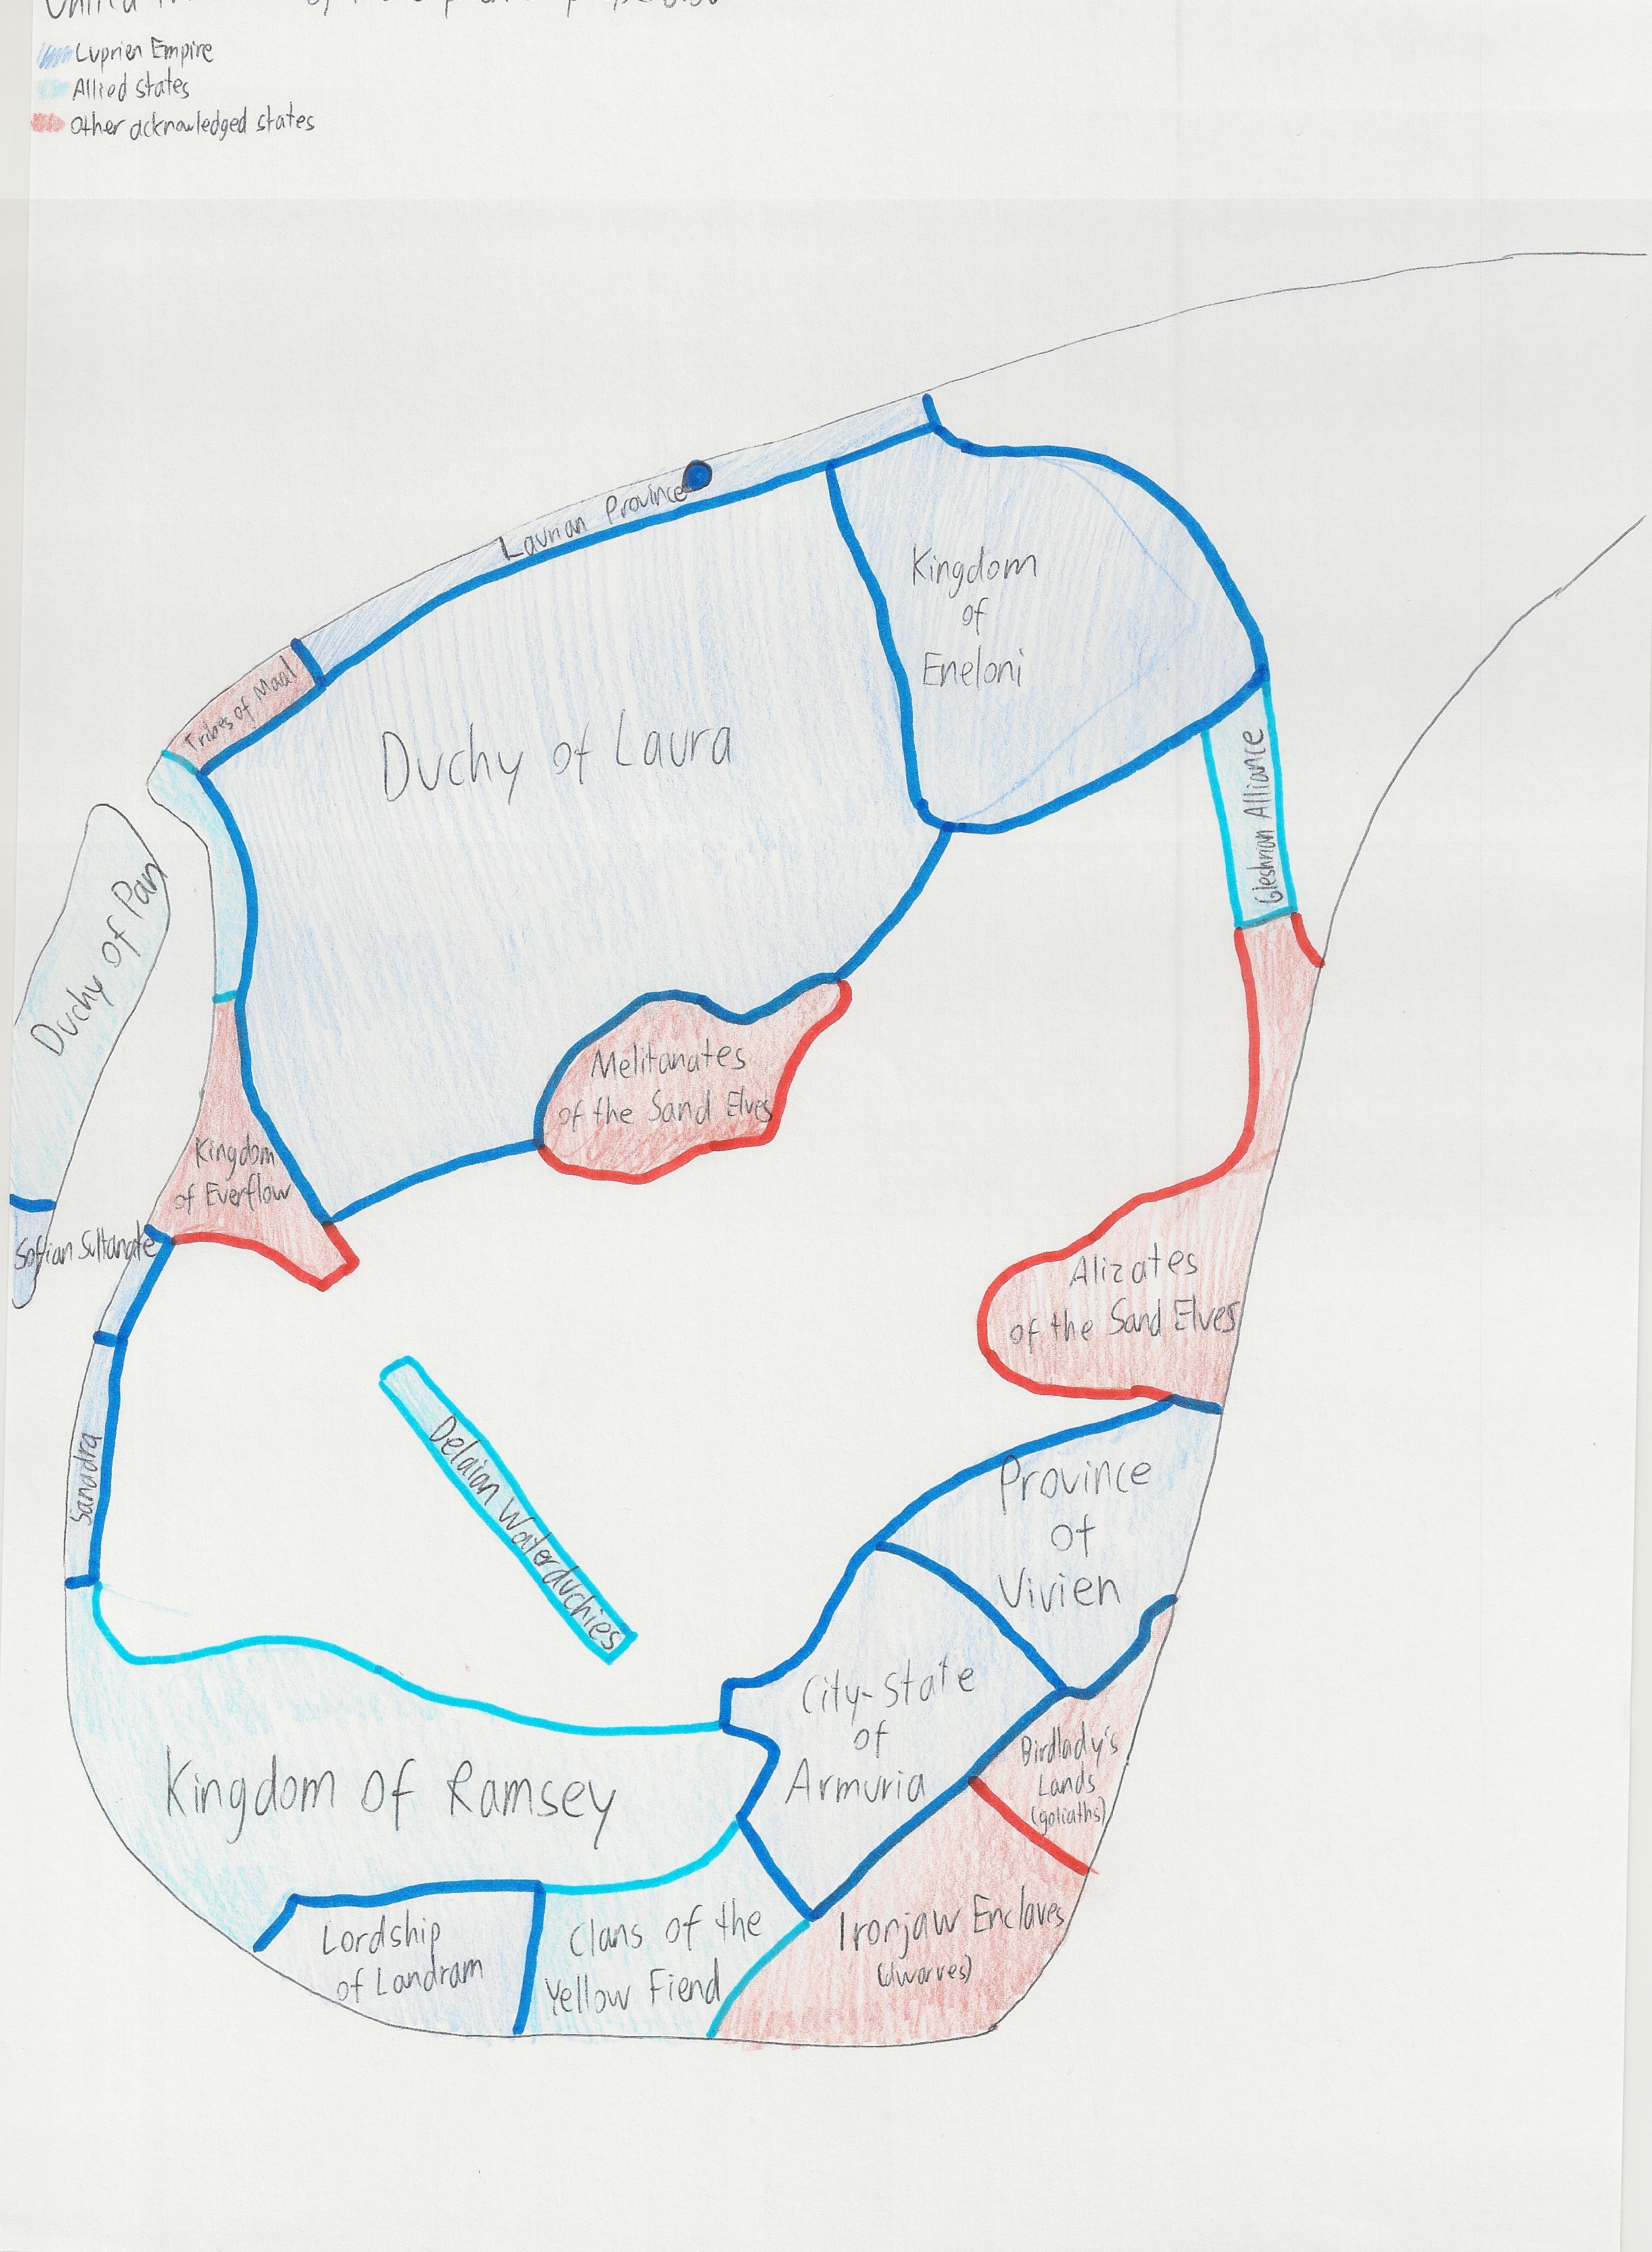 Luprien Empire
Allied states
Other acknowledged states
Laurian Province
Kingdom
of
Eneloni
Tribes of Maal
Duchy of Laura
Gleshrian Alliance
Duchy of Pan
Melitanates
of the Sand Elves
Kingdom
of Everflow
Sofian Sultanate
Alizates
of the Sand Elves
Sanadra
Delaian Waterduchies
Province
of
Vivien
City-State
of
Armuria
Birdlady's
Lands
(goliaths)
Kingdom of Ramsey
Lordship
of Landram
Clans of the
Yellow Fiend
Ironjaw Enclaves
(dwarves)